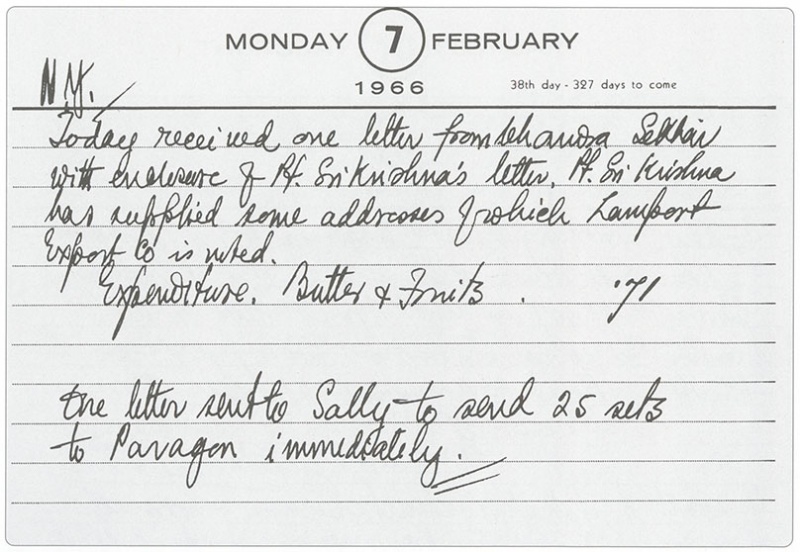 MONDAY 7 FEBRUARY
1966 38th day - 327 days to come
N.Y.
Today received one letter from Chandra Sekhar
with enclosure of Pt. Sri Krishna's letter. Pt. Sri Krishna
has supplied some addresses of which Lamport
Export Co is noted.
Expenditure. Butter & Fruits . '71
One letter sent to Sally to send 25 sets
to Paragon immediately.